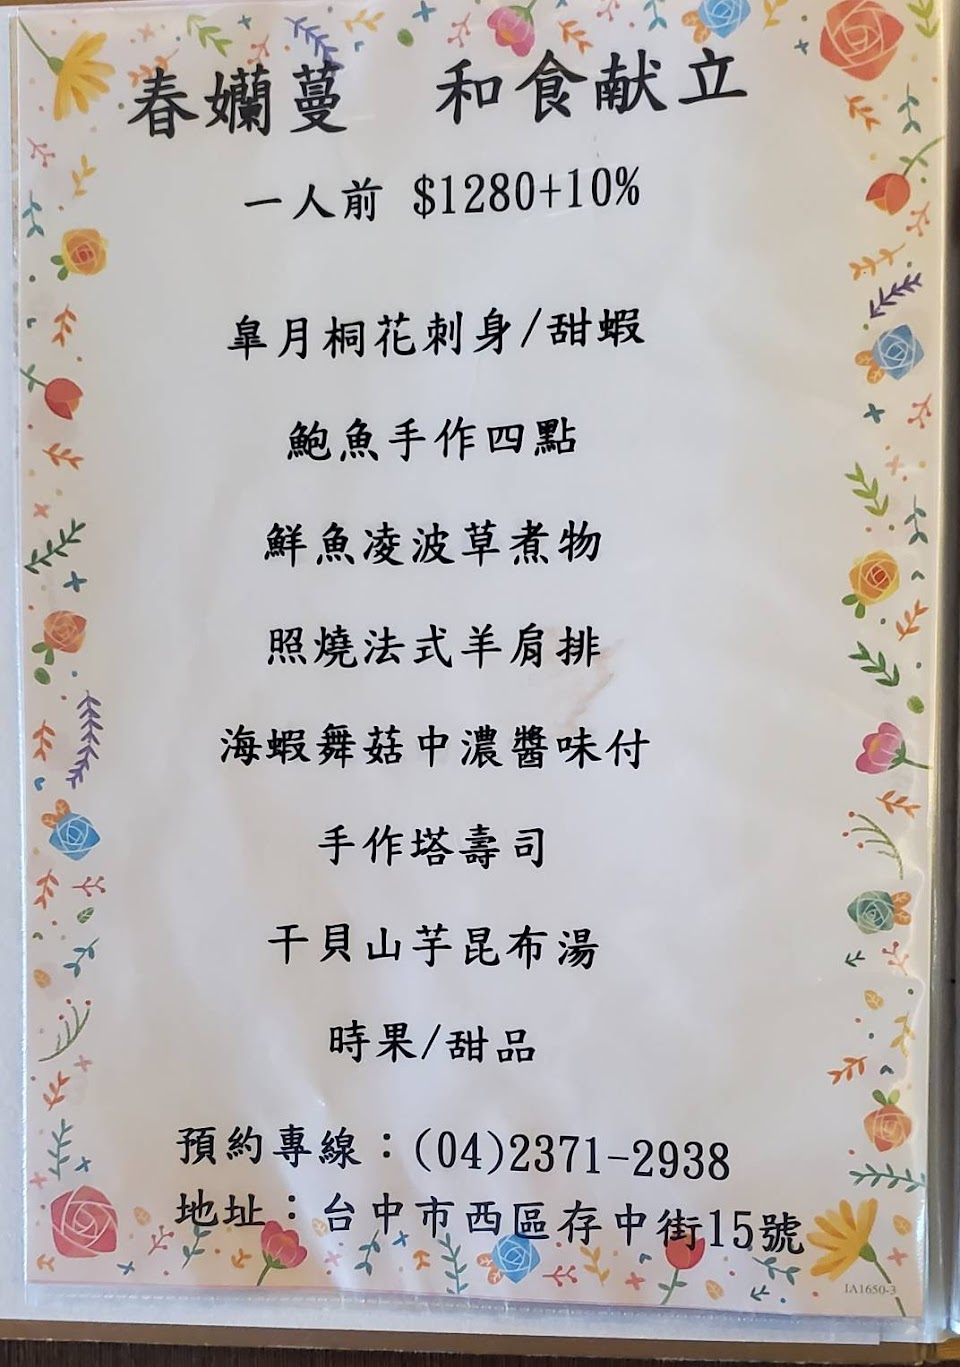 春孏蔓　和食献立
一人前 $1280+10%
皐月桐花刺身/甜蝦
鮑魚手作四點
鮮魚凌波草煮物
照燒法式羊肩排
海蝦舞菇中濃醬味付
手作塔壽司
干貝山芋昆布湯
時果/甜品
預約專線：(04)2371-2938
地址：台中市西區存中街15號
JA1650-3